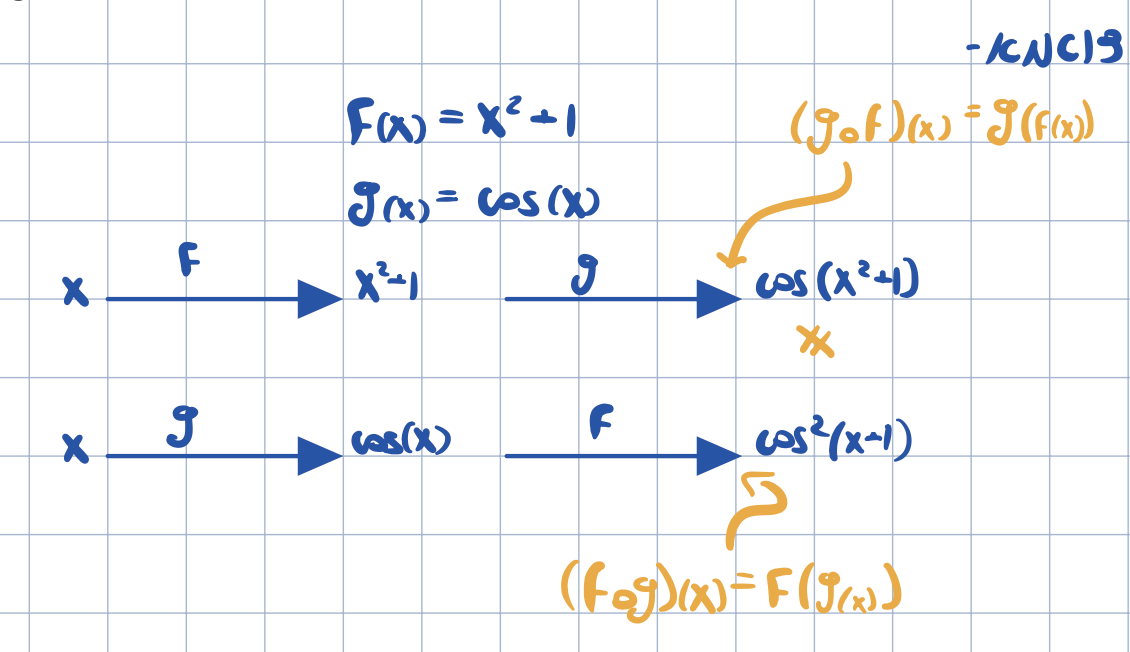 -KNCIg
F(x) = x² + 1
(g∘f)(x) = g(f(x))
g(x) = cos(x)
x F x²+1 g cos(x²+1)
x g cos(x) F cos²(x+1)
(f∘g)(x) = F(g(x))